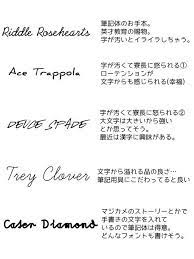 Riddle Rosehearts
筆記体のお手本。
英才教育の賜物。
字が汚いとイライラしちゃう。
Ace Trappola
字が汚くて寮長に怒られる①
ローテンションが
文字からも感じられる(幸福)
DEUCE SPADE
字が汚くて寮長に怒られる②
大文字は大きいから強い
とか思ってそう。
最近は漢字に興味がある。
Trey Clover
文字から溢れる品の良さ…
筆記用具にこだわってると良い
Cater Diamond
マジカメのストーリーとかで
手書きの文字を入れて
いるので筆記体は得意。
どんなフォントも書けそう。